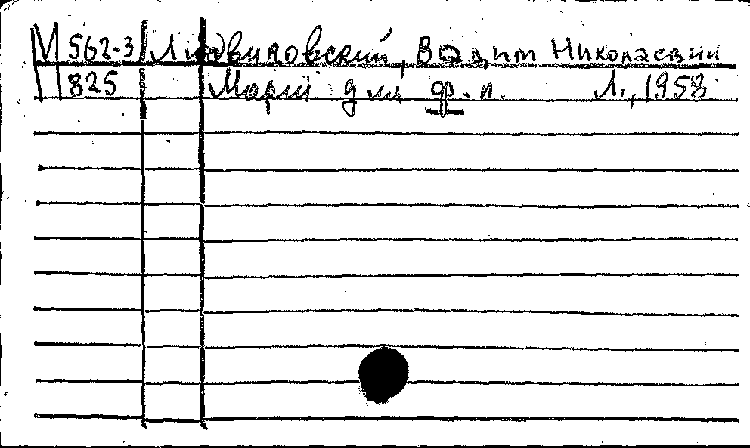 М 562-3 Людвиновский, Вадим Николаевич
825 Марш для ф.п. Л., 1958